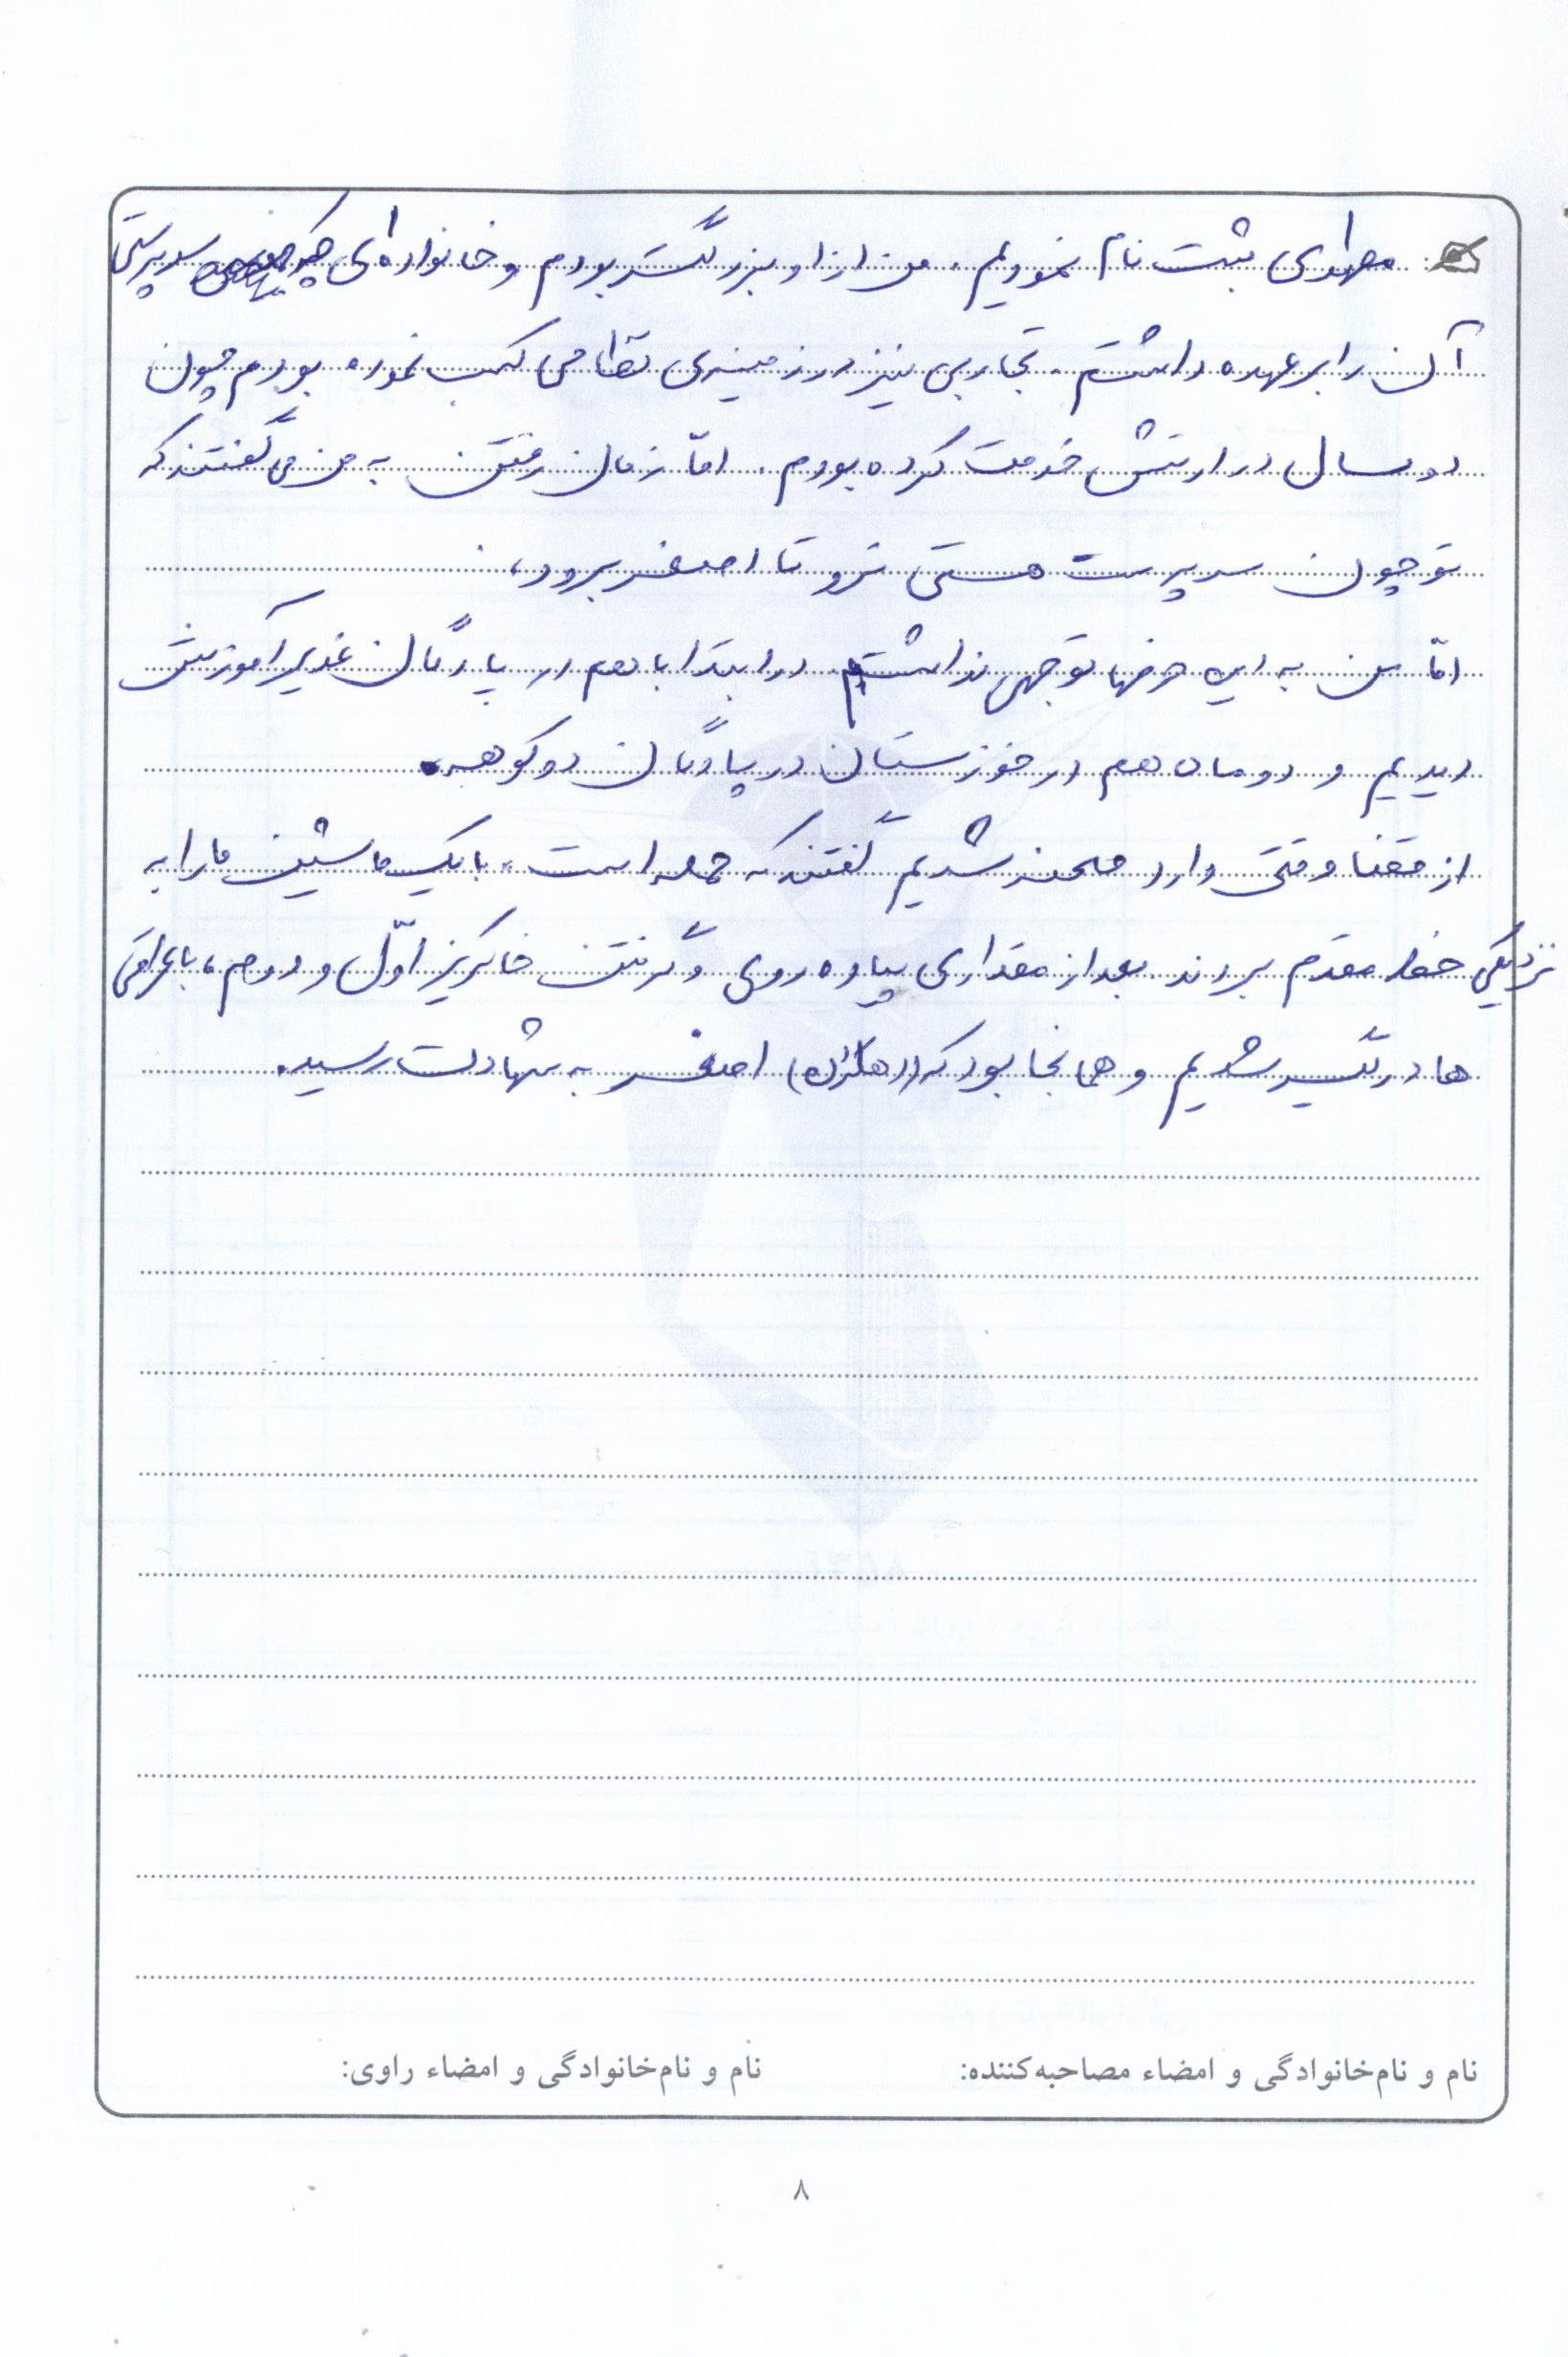 مصلهای ثبت نام نمودیم. من از او بزرگتر بودم و خانواده‌ای که سرپرستی
آن را بر عهده داشتم. تجاربی نیز در زمینه‌ی نظامی کسب نموده بودم چون
دو سال در ارتش خدمت کرده بودم. امّا زمان رفتن به من می گفتند که
تو چون سرپرست هستی نرو تا اصغر برود،
امّا من به این حرفها توجهی نداشتم. در ابتدا با هم در پادگان غدیر آموزش
دیدیم و دومان هم در خوزستان در پادگان دوکوهه.
از قضا وقتی وارد صحنه شدیم گفتند که حمله است. با یک ماشین ما را به
نزدیکی خط مقدم بردند. بعد از مقداری پیاده روی و گرفتن خاکریز اوّل و دوم، با عراقی
ها درگیر شدیم و همانجا بود که اصغر به شهادت رسید.
نام و نام‌خانوادگی و امضاء مصاحبه‌کننده: نام و نام‌خانوادگی و امضاء راوی:
۸